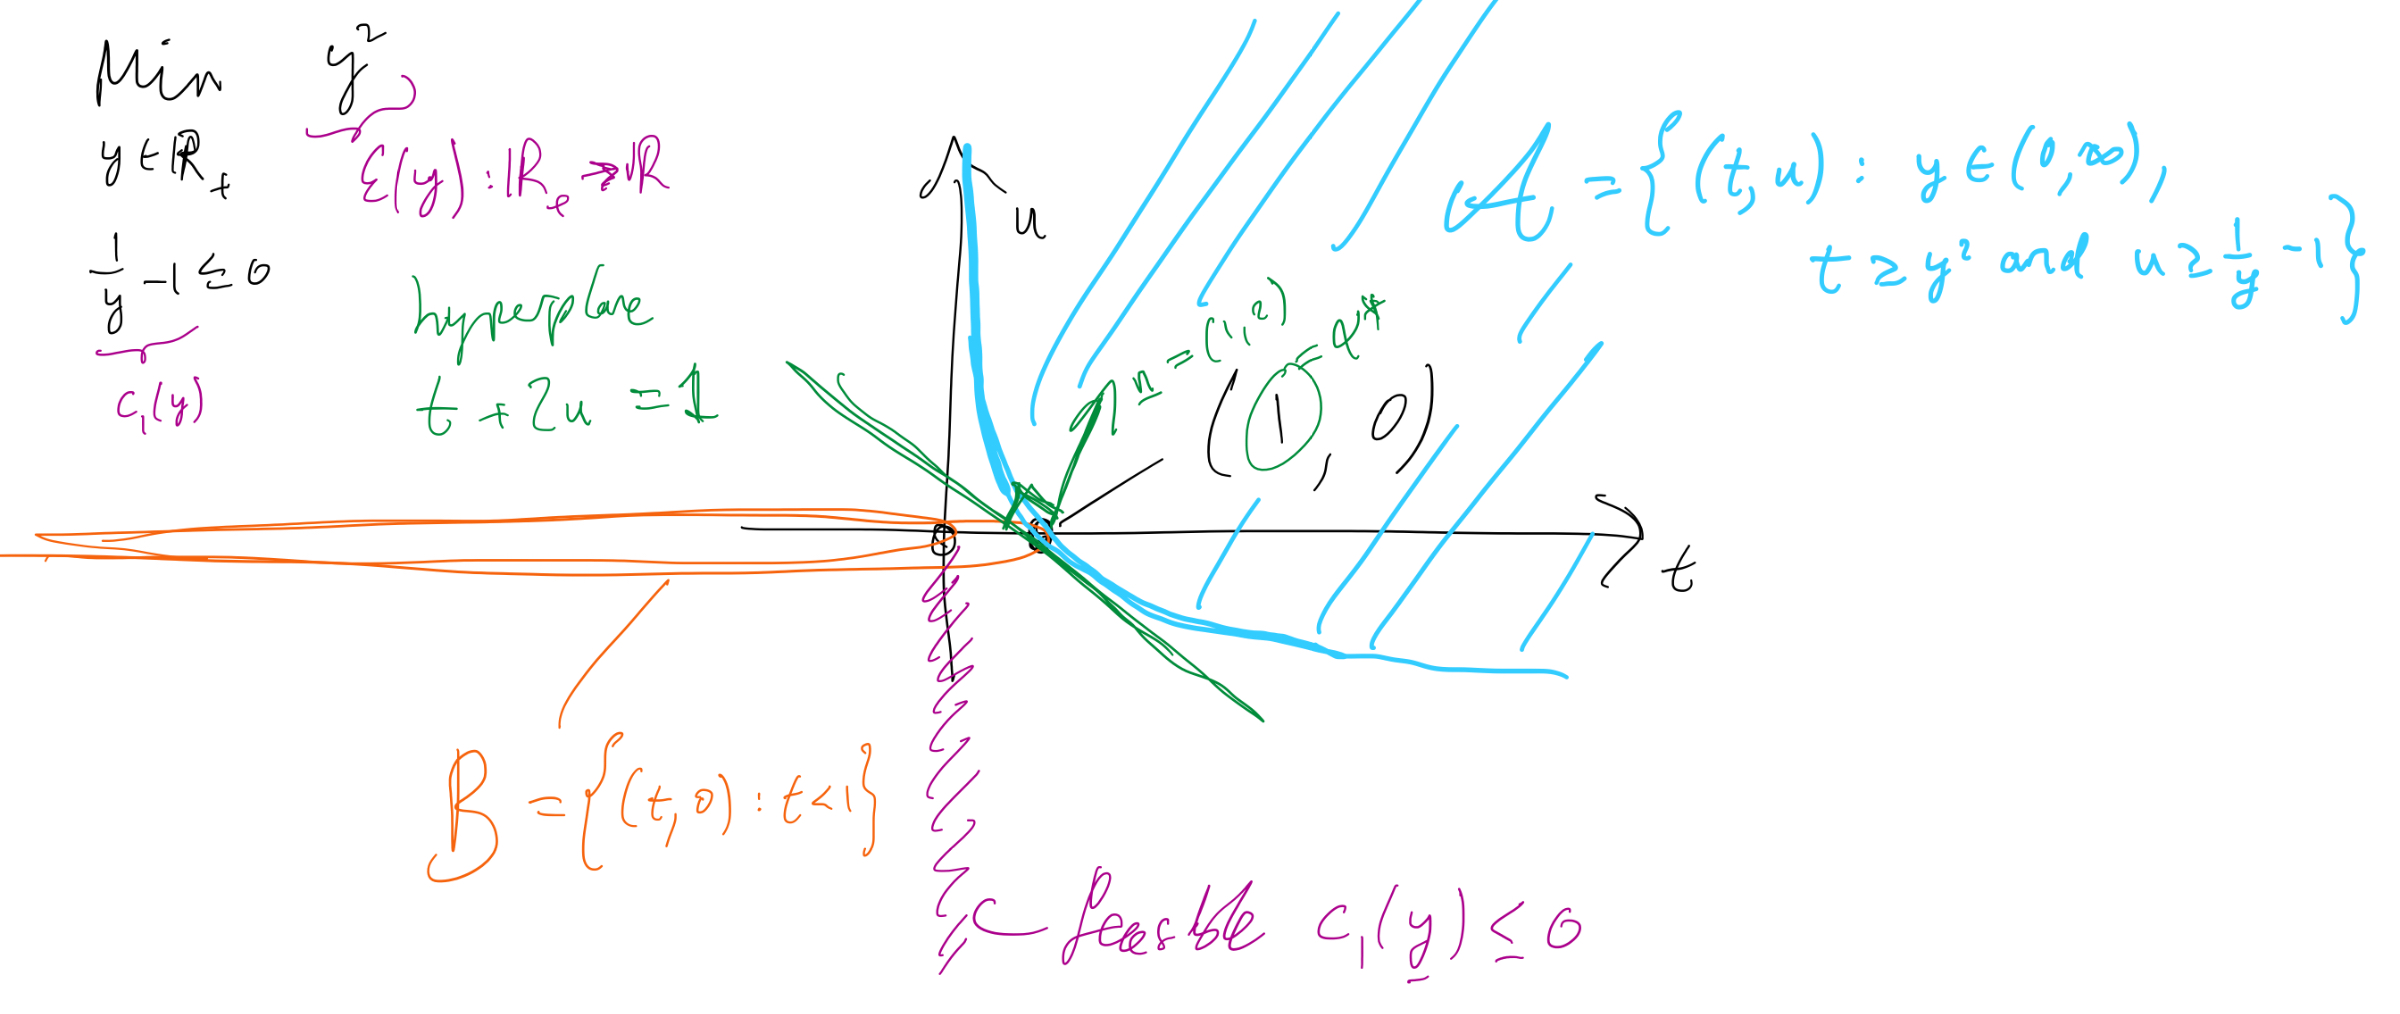 Min y²
y ∈ ℝ₊
ℰ(y) : ℝ₊ → ℝ
1/y - 1 ≤ 0
c₁(y)
hyperplane
t + 2u = 1
u
n = (1, 2)
(1, 0)
= q*
t
𝒜 = {(t, u) : y ∈ (0, ∞),
t ≥ y² and u ≥ 1/y - 1}
B = {(t, 0) : t < 1}
feasible c₁(y) ≤ 0